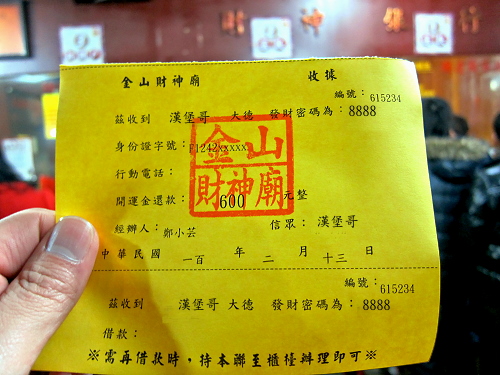 財神銀行
金山財神廟 收據
編號：615234
茲收到 漢堡哥 大德 發財密碼為：8888
身份證字號：F1242xxxxx
行動電話：
開運金還款： 600 元整
金山
財神廟
經辦人：鄭小芸 信眾：漢堡哥
中華民國 一百 年 二 月 十三 日
編號：615234
茲收到 漢堡哥 大德 發財密碼為：8888
借款：
※需再借款時，待本聯至櫃檯辦理即可※